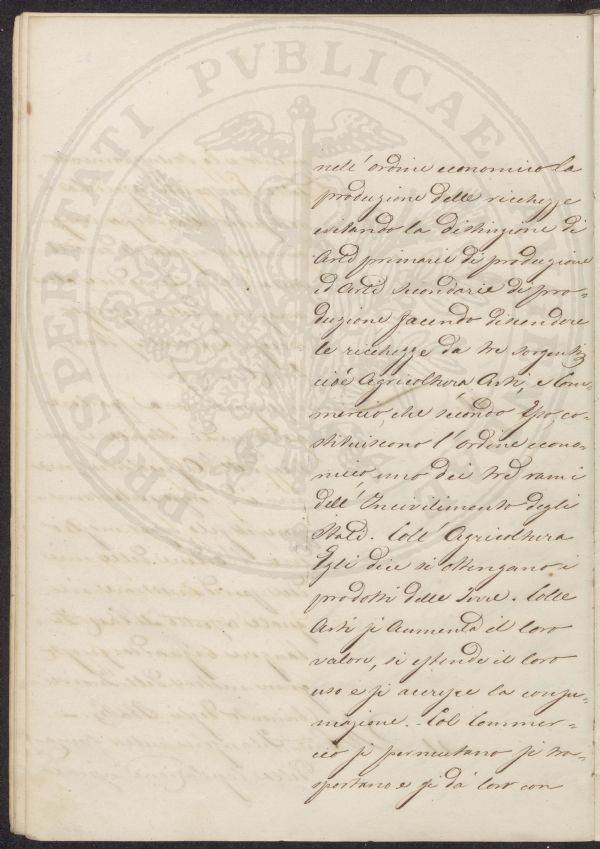 PROSPERITATI PVBLICAE
nell' ordine economico la
produzione delle ricchezze
evitando la distinzione di
Arti primarie di produzione
ed Arti secondarie di pro-
duzione facendo discendere
le ricchezze da tre sorgenti
cioè Agricoltura Arti, e Com-
mercio, che secondo Esso co-
stituiscono l'ordine econo-
mico, uno dei tre rami
dell' Incivilimento degli
Stati. Coll' Agricoltura
Egli dice si ottengano i
prodotti delle Terre. Colle
Arti si aumenta il loro
valore, si estende il loro
uso e si accresce la consu-
mazione. Col Commer-
cio si permutano si tra-
sportano e si dà loro con